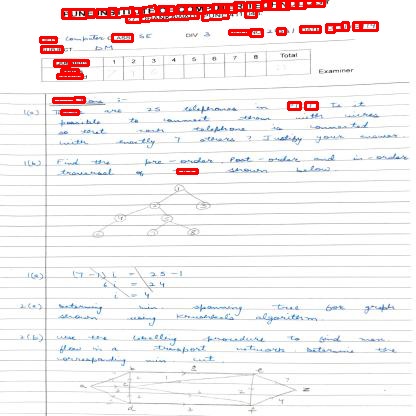 Computer SE DIV 3
DM
1 2 3 4 5 6 7 8 Total
Examiner
1(a) are 25 telephones in Is it
possible to connect them with wires
so that each telephone is connected
with exactly 7 others? Justify your answer.
1(b) Find the pre-order, Post-order and in-order
traversal of shown below.
1
2 3
4 5
6 7 8
1(a) (7-1) i = 25-1
6i = 24
i = 4
2(a) determine min. spanning tree for graph
shown using Kruskal's algorithm.
2(b) use the labelling procedure to find max
flow in a transport network determine the
corresponding min cut.
b c e
a z
d f